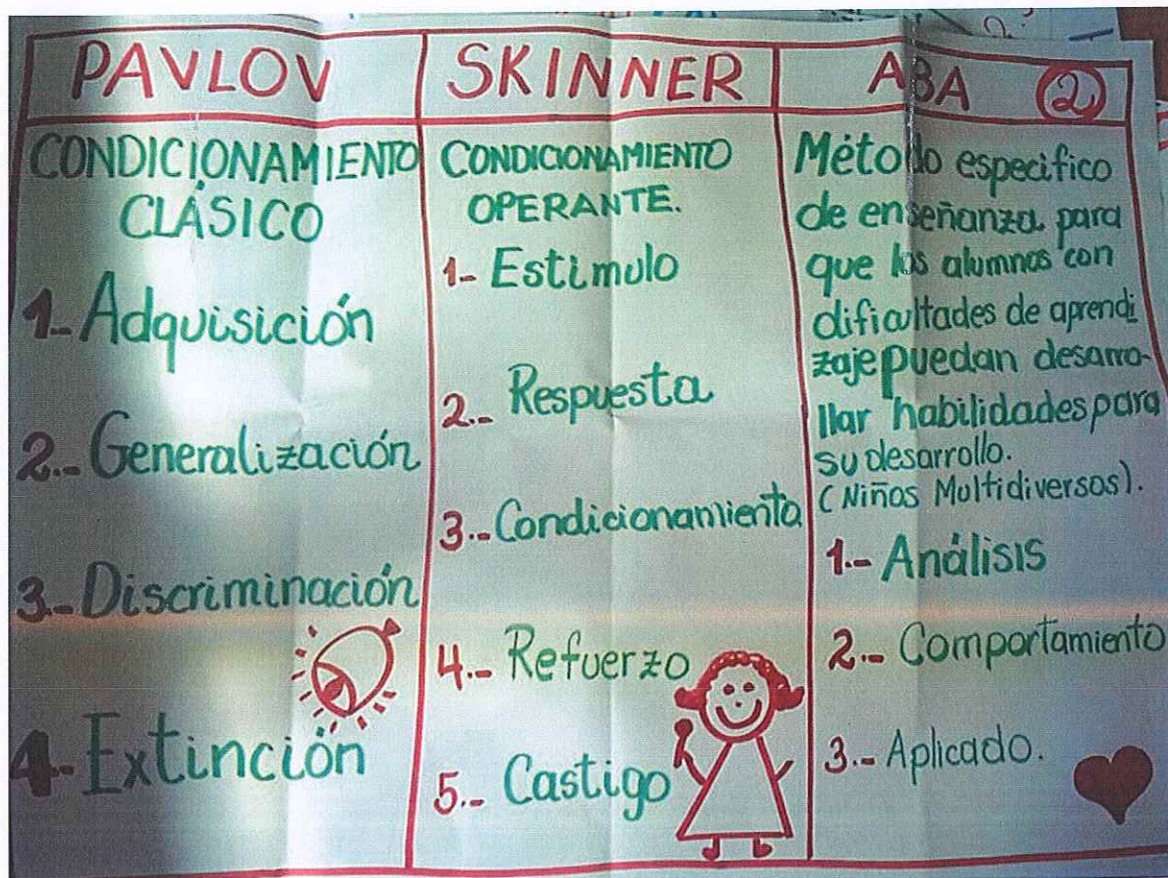 PAVLOV
CONDICIONAMIENTO
CLÁSICO
1.- Adquisición
2.- Generalización
3.- Discriminación
4.- Extinción
SKINNER
CONDICIONAMIENTO
OPERANTE.
1- Estimulo
2.- Respuesta
3.- Condicionamiento
4.- Refuerzo
5.- Castigo
ABA 2
Método especifico
de enseñanza para
que los alumnos con
dificultades de aprendi
zaje puedan desarro-
llar habilidades para
su desarrollo.
(Niños Multidiversos).
1.- Análisis
2.- Comportamiento
3.- Aplicado.